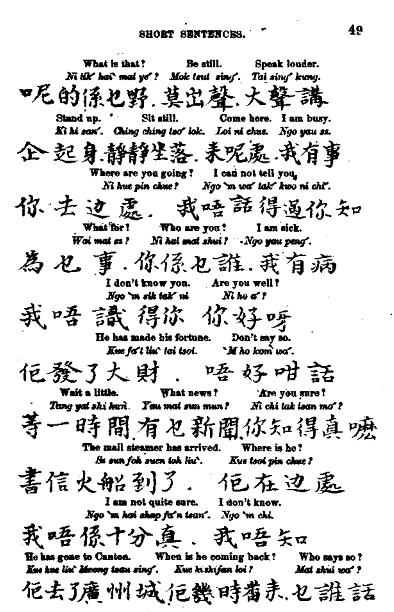 SHORT SENTENCES. 49
What is that? Be still. Speak louder.
Ni tik' hai' mat ye'? Mok tsut sing'. Tai sing' kung.
呢的係乜野.莫出聲.大聲講
Stand up. Sit still. Come here. I am busy.
Ki hi san'. Ching ching tso' lok. Loi ni chue. Ngo yau sz.
企起身.靜靜坐落.来呢處.我有事
Where are you going? I can not tell you.
Ni hue pin chue? Ngo 'm wa' tak' kwo ni chi'.
你去边處.我唔話得過你知
What for? Who are you? I am sick.
Wai mat sz? Ni hai mat shui? Ngo yau peng'.
為乜事.你係乜誰.我有病
I don't know you. Are you well?
Ngo 'm sik tak' ni Ni ho a'?
我唔識得你 你好呀
He has made his fortune. Don't say so.
Kue fa't liu' tai tsoi. 'M ho kom' wa'.
佢發了大財.唔好咁話
Wait a little. What news? Are you sure?
Tang yat shi han. Yau mat sun mun? Ni chi tak tsan mo'?
等一時間.有乜新聞.你知得真嚒
The mail steamer has arrived. Where is he?
Sz sun foh suen toh liu'. Kue tsoi pin chue?
書信火船到了.佢在边處
I am not quite sure. I don't know.
Ngo 'm hai shap fa'n tsan'. Ngo 'm chi.
我唔係十分真.我唔知
He has gone to Canton. When is he coming back? Who says so?
Kue hue liu' Kwong tsau sing'. Kue ki shi fan loi? Mat shui wa'?
佢去了廣州城.佢幾時番来.乜誰話